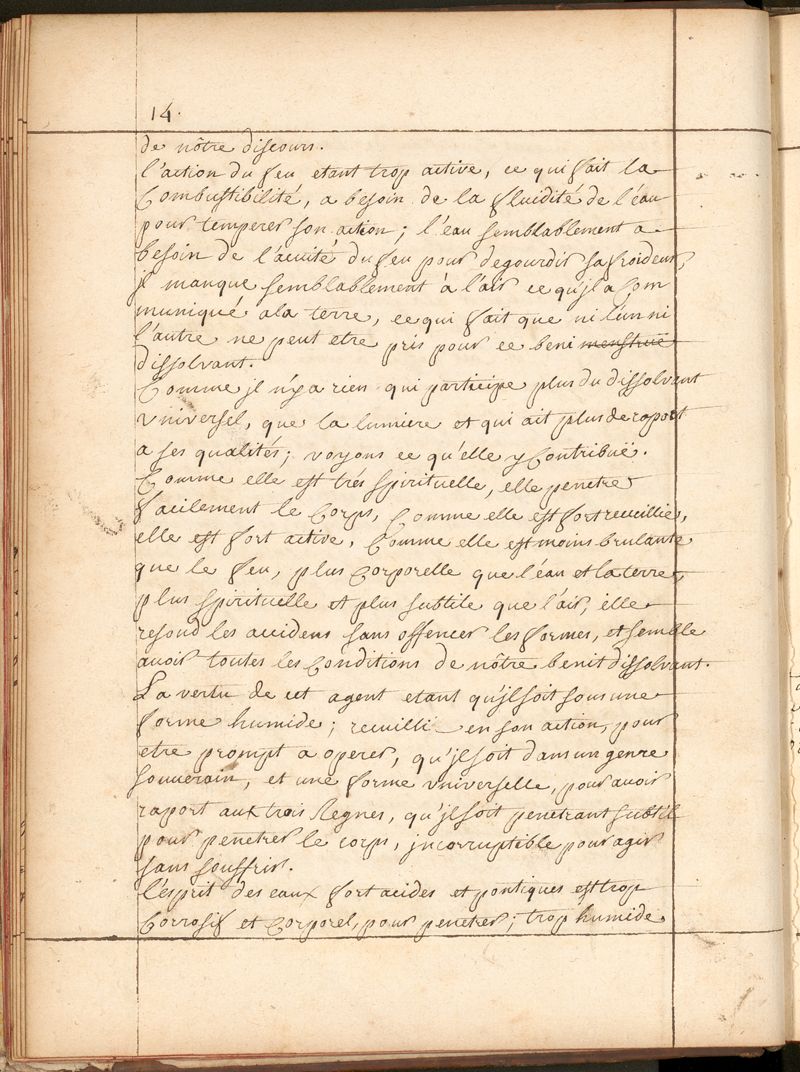 14.
de nôtre discours.
l'action du feu etant trop active, ce qui fait la
Combustibilité, a besoin de la fluidité de l'eau
pour temperer son action; l'eau semblablement a
besoin de l'acuité du feu pour degourdir sa froideur,
jl manque semblablement à l'air ce qu'jl a Com
muniqué a la terre, ce qui fait que ni l'un ni
l'autre ne peut etre pris pour ce beni menstrue
dissolvant.
Comme jl n'y a rien qui participe plus du dissolvant
vniversel, que la lumiere et qui ait plus de raport
a ses qualités; voyons ce qu'elle y Contribuë.
Comme elle est trés spirituelle, elle penetre
facilement le Corps, Comme elle est fort recueillie,
elle est fort active, Comme elle est moins brulante
que le feu, plus Corporelle que l'eau et la terre,
plus spirituelle et plus subtile que l'air, elle
resoud les accidens sans offencer les formes, et semble
avoir toutes les Conditions de nôtre benit dissolvant.
La vertu de cet agent etant qu'jl soit sous une
forme humide; recuilli en son action, pour
etre prompt a operer, qu'jl soit dans un genre
souverain, et une forme vniverselle, pour avoir
raport aux trois Regnes, qu'jl soit penetrant subtil
pour penetrer le corps, jncorruptible pour agir
sans souffrir.
l'esprit des eaux fort acides et pontiques est trop
Corrosif et Corporel, pour penetrer; trop humide